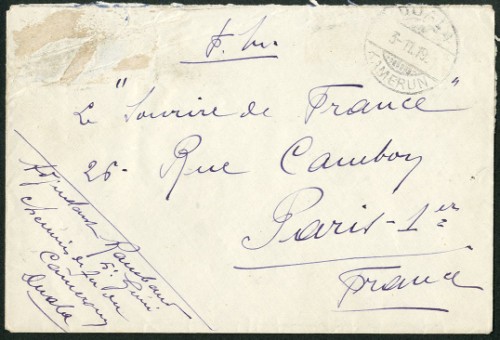 F. M.
DUALA
3-11.19.
KAMERUN
Le "Sourire de France"
26- Rue Cambon
Paris-1er
France
Adjudant Rambaud
5e Génie
Chemins de fer du
Cameroun
Duala